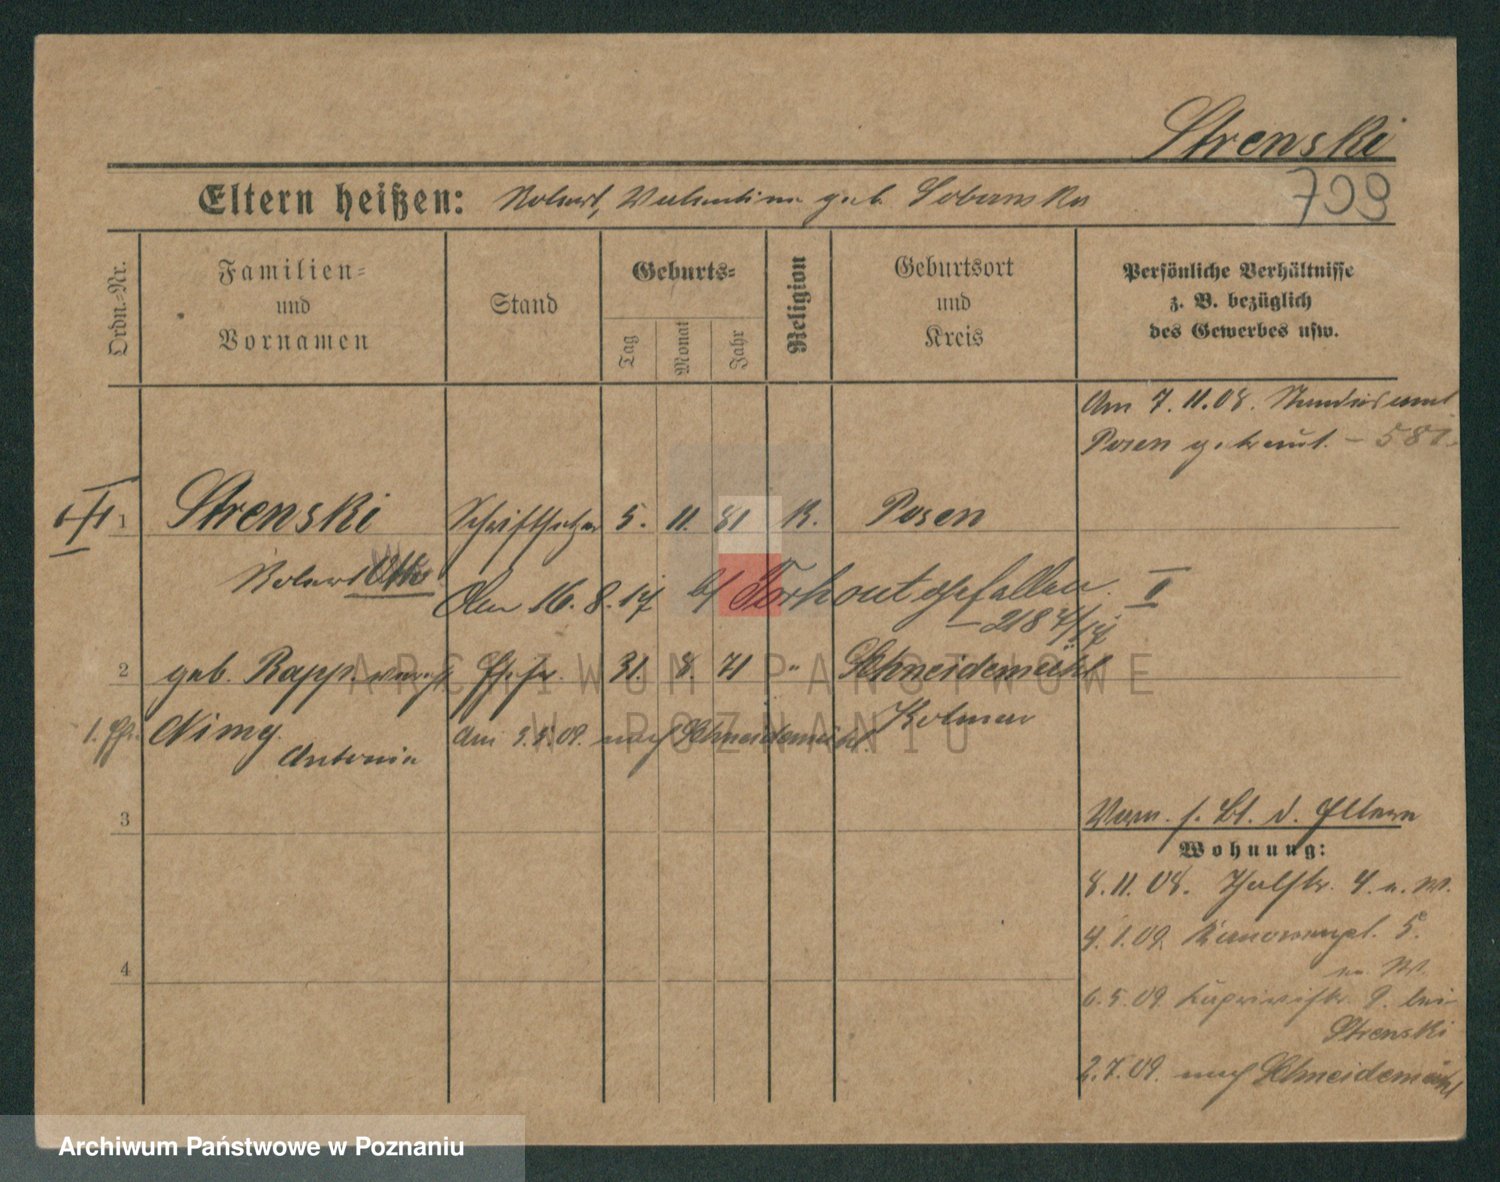 Strenski
Eltern heißen: Robert, Valentina geb. Sobanska
709
Ordn.=Nr.
Familien=
und
Vornamen
Stand
Geburts=
Tag
Monat
Jahr
Religion
Geburtsort
und
Kreis
Persönliche Verhältnisse
z. B. bezüglich
des Gewerbes usw.
Am 7.11.08. Standesamt
Posen getraut. – 581.
1 Strenski Schriftsetzer 5. 11. 81 K. Posen
Robert Otto
Am 16.8.17 b/ Torhout gefallen.
– 2187/17
2 geb. Rapp. Ehefr. 31. 8. 71 " Schneidemühl
Kolmar
Antonia
Am 3.5.09. nach Schneidemühl
3
Verm. s. Bl. d. Eltern
Wohnung:
8.11.08. Halbstr. 4. a. W.
4.1.09. 5.
4
6.5.09. Caprivistr. 9. bei
Strenski
2.7.09. nach Schneidemühl
ARCHIWUM PAŃSTWOWE
W POZNANIU
Archiwum Państwowe w Poznaniu